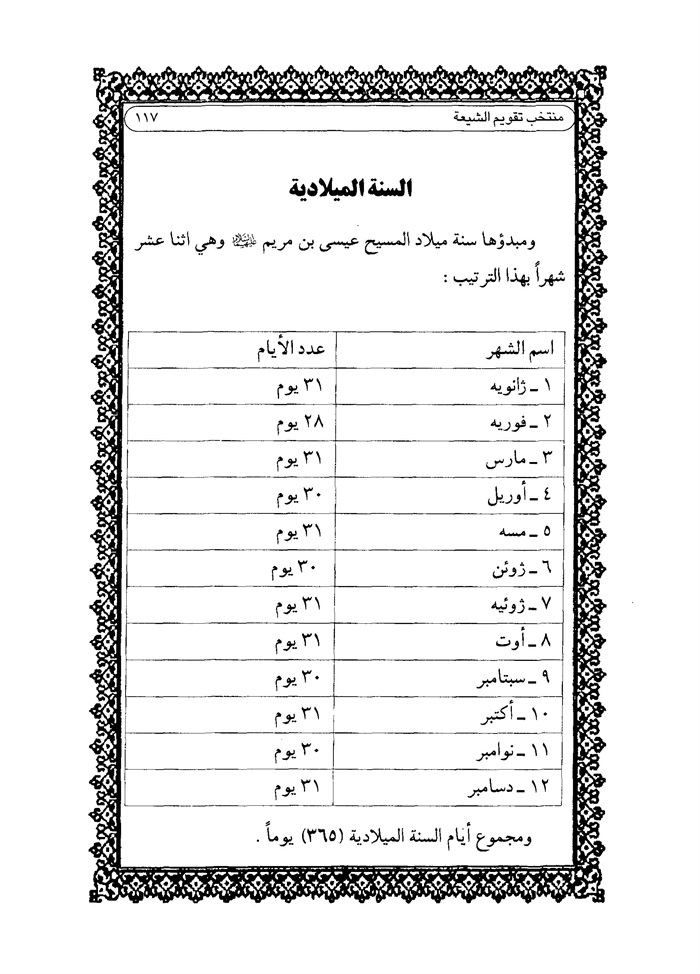 منتخب تقويم الشيعة ١١٧
السنة الميلادية
ومبدؤها سنة ميلاد المسيح عيسى بن مريم عليه السلام وهي اثنا عشر
شهراً بهذا الترتيب :
اسم الشهر عدد الأيام
١ ـ ژانويه ٣١ يوم
٢ ـ فوريه ٢٨ يوم
٣ ـ مارس ٣١ يوم
٤ ـ أوريل ٣٠ يوم
٥ ـ مسه ٣١ يوم
٦ ـ ژوئن ٣٠ يوم
٧ ـ ژوئيه ٣١ يوم
٨ ـ أوت ٣١ يوم
٩ ـ سبتامبر ٣٠ يوم
١٠ ـ أكتبر ٣١ يوم
١١ ـ نوامبر ٣٠ يوم
١٢ ـ دسامبر ٣١ يوم
ومجموع أيام السنة الميلادية (٣٦٥) يوماً .